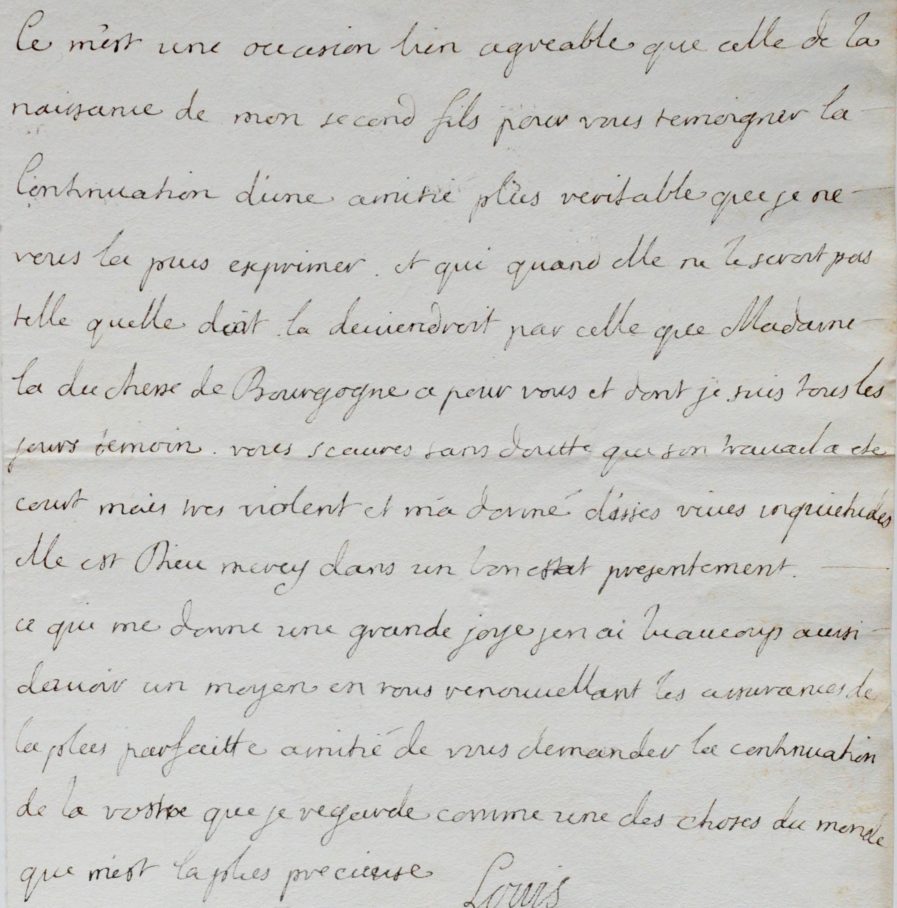 Ce m'est une occasion bien agreable que celle de la
naissance de mon second fils pour vous temoigner la
Continuation d'une amitié plus veritable que je ne
vous la puis exprimer. et qui quand elle ne le seroit pas
telle quelle doit la deuiendroit par celle que Madame
la duchesse de Bourgogne a pour vous et dont je suis tous les
jours temoin. vous scaures sans doutte que son trauail a este
court mais tres violent et m'a donné d'asses viues inquietudes
elle est Dieu mercy dans un bon estat presentement.
ce qui me donne une grande joye jen ai beaucoup aussi
dauoir un moyen en vous renouuellant les assurances de
la plus parfaitte amitié de vous demander la continuation
de la vostre que je regarde comme une des choses du monde
que m'est la plus precieuse Louis